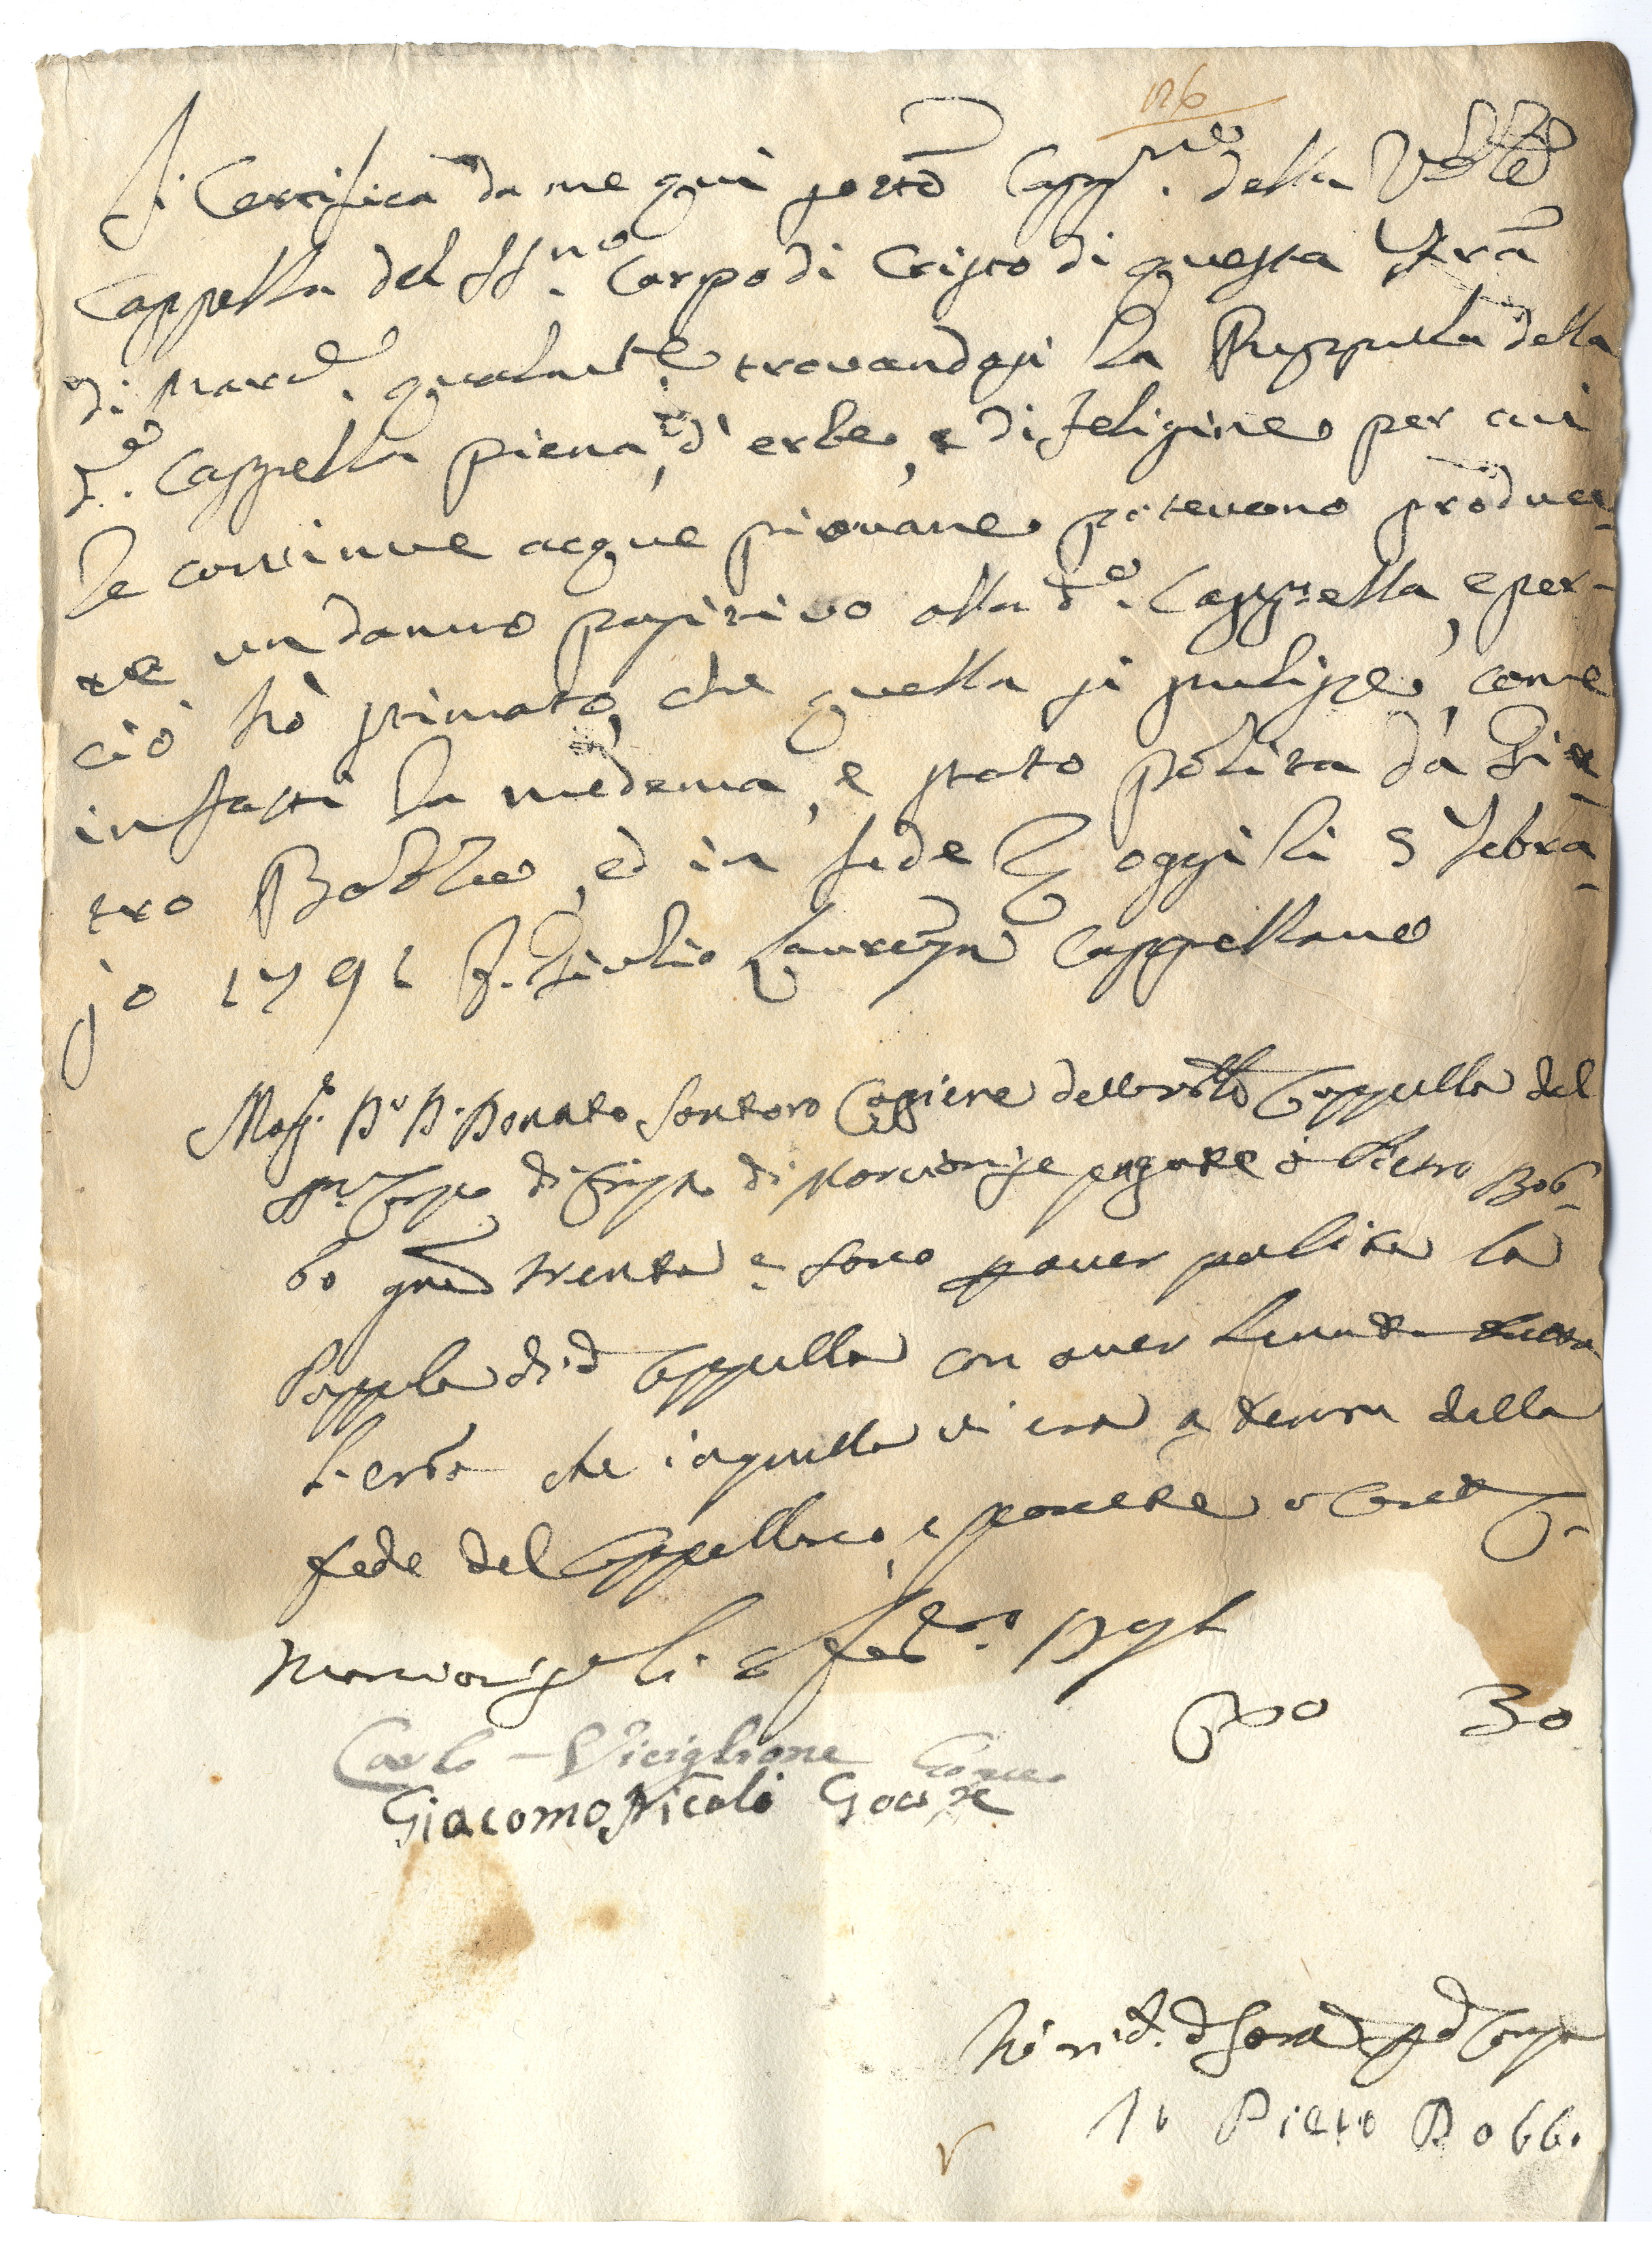 126
Si Certifica da me qui sotto Capp.no della Vble
Cappella del SS.mo Corpo di Cristo di questa Terra
di Marc.e qualm.te trovandosi la Puppula della
d.a Cappella piena d'erbe, e di feligine per cui
le continue acque piovane potevano produr-
re un danno positivo alla d.a Cappella, e per-
ciò hò stimato, che quella si pulisse, come
infatti la medema è stata polita da Pie-
tro Bobbo, ed in fede oggi li 5 Febra-
jo 1791 Giulio Cappellano
Mag.co D.r D. Donato Santoro Cassiere della Vble Cappella del
SS.mo Corpo di Cristo di Marcianise pagate à Pietro Bob-
bo grana trenta e sono p aver polita la
Puppula di d.a Cappella con aver levata tutta
l'erba che in quella vi era a tenore della
fede del Cappellano, e ponete a
Marcianise li 6 Feb.ro 1791
30
Carlo Viciglione
Giacomo Nicolò
Hò ric.
Io Pietro Bobbo